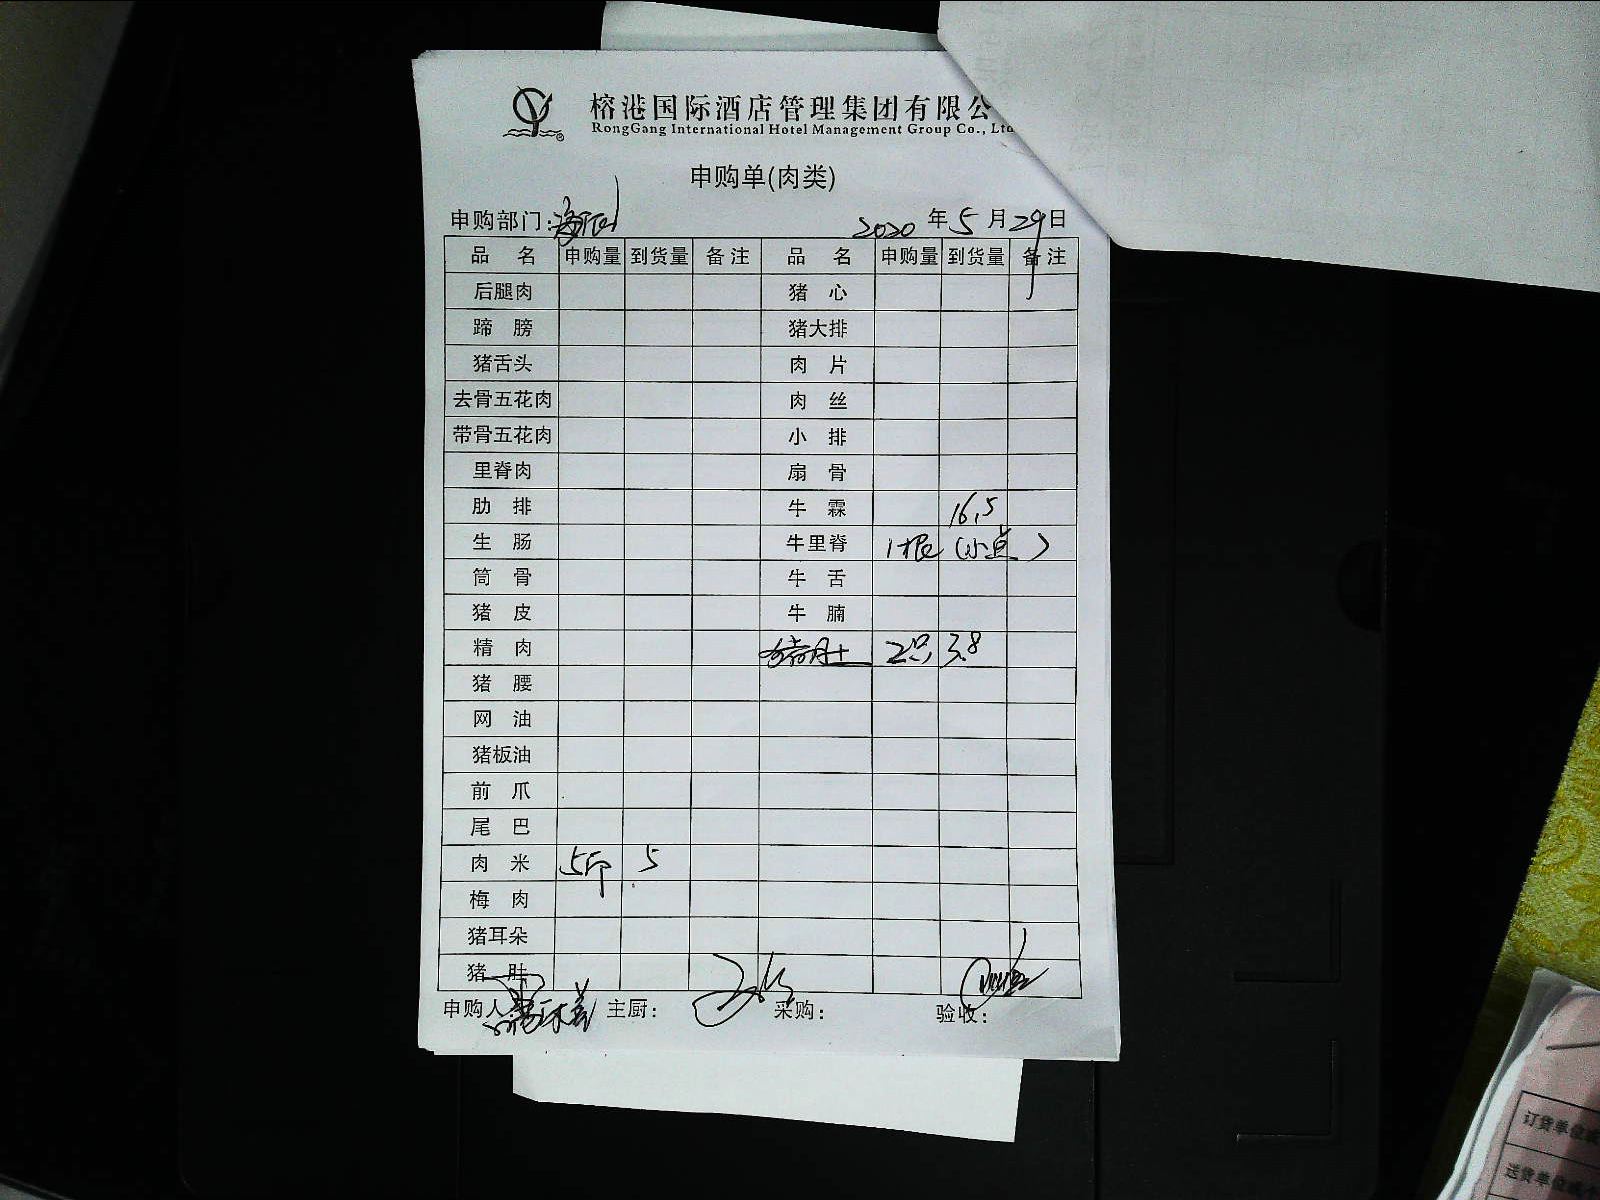 榕港国际酒店管理集团有限公
RongGang International Hotel Management Group Co., Ltd
申购单(肉类)
申购部门: 2020年5月29日
品 名 申购量 到货量 备注 品 名 申购量 到货量 备注
后腿肉 猪 心
蹄 膀 猪大排
猪舌头 肉 片
去骨五花肉 肉 丝
带骨五花肉 小 排
里脊肉 扇 骨
肋 排 牛 霖 16.5
生 肠 牛里脊 1根 (小点)
筒 骨 牛 舌
猪 皮 牛 腩
精 肉 猪肚 2只 3.8
猪 腰
网 油
猪板油
前 爪
尾 巴
肉 米 5斤 5
梅 肉
猪耳朵
猪 肚
申购人: 主厨: 采购: 验收:
订货单位或
送货单位或